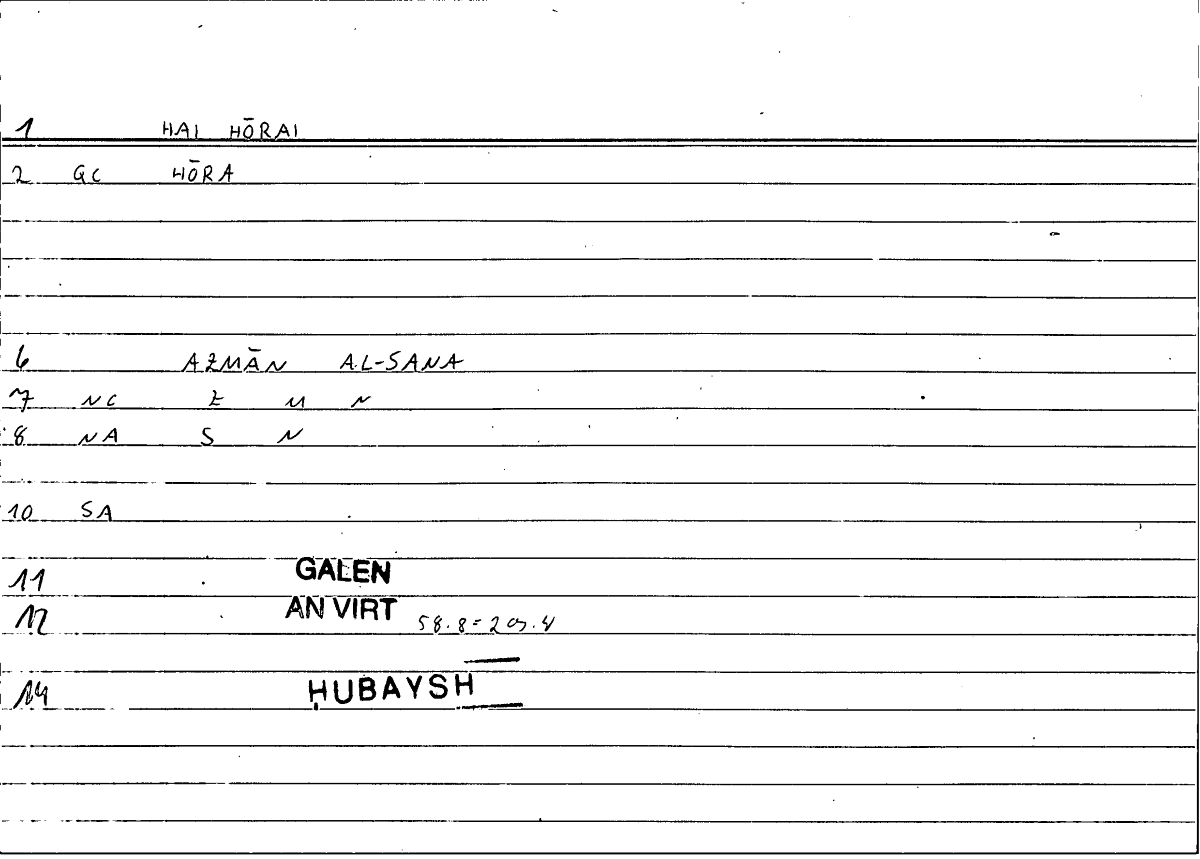 1 HAI HŌRAI
2 GC HŌRA
6 AZMĀN AL-SANA
7 NC Z M N
8 NA S N
10 SA
11 GALEN
12 AN VIRT 58.8=
14 ḤUBAYSH